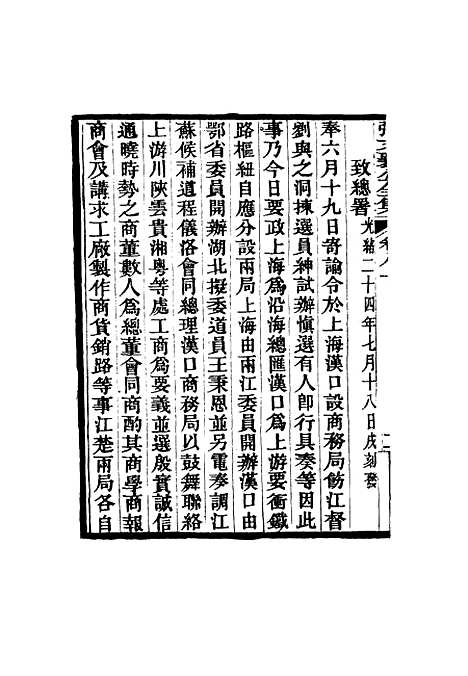 張文襄公全集 卷八十
致總署光緒二十四年七月十八日戌刻發
奉六月十九日寄諭令於上海漢口設商務局飭江督
劉與之洞揀選員紳試辦愼選有人卽行具奏等因此
事乃今日要政上海爲沿海總匯漢口爲上游要衝鐵
路樞紐自應分設兩局上海由兩江委員開辦漢口由
鄂省委員開辦湖北擬委道員王秉恩並另電奏調江
蘇候補道程儀洛會同總理漢口商務局以鼓舞聯絡
上游川陝雲貴湘粤等處工商爲要義並選殷實誠信
通曉時勢之商董數人爲總董會同商酌其商學商報
商會及講求工廠製作商貨銷路等事江楚兩局各自